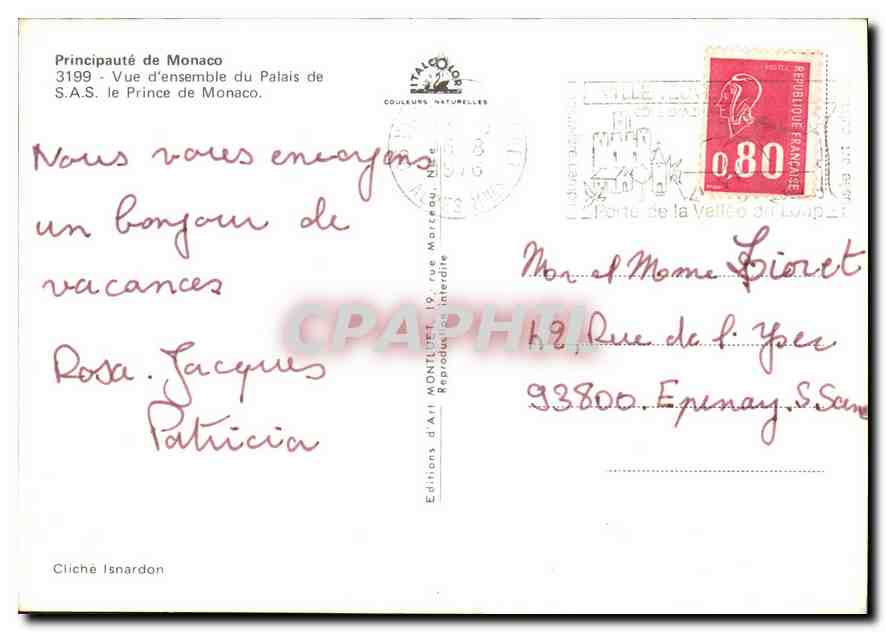 Principauté de Monaco
3199 - Vue d'ensemble du Palais de
S.A.S. le Prince de Monaco.
ITALCOLOR
COULEURS NATURELLES
Nous vous envoyons
un bonjour de
vacances
Rosa. Jacques
Patricia
Cliché Isnardon
Editions d'Art MONTLUET, 19, rue Marceau, Nice
Reproduction interdite
1976
ALPES MMES
Porte de la Vallée du Loup
POSTES
REPUBLIQUE FRANÇAISE
0,80
Mor et Mome Lioret
42, Rue de l'Yser
93800. Epinay. S. Sein
CPAPHIL